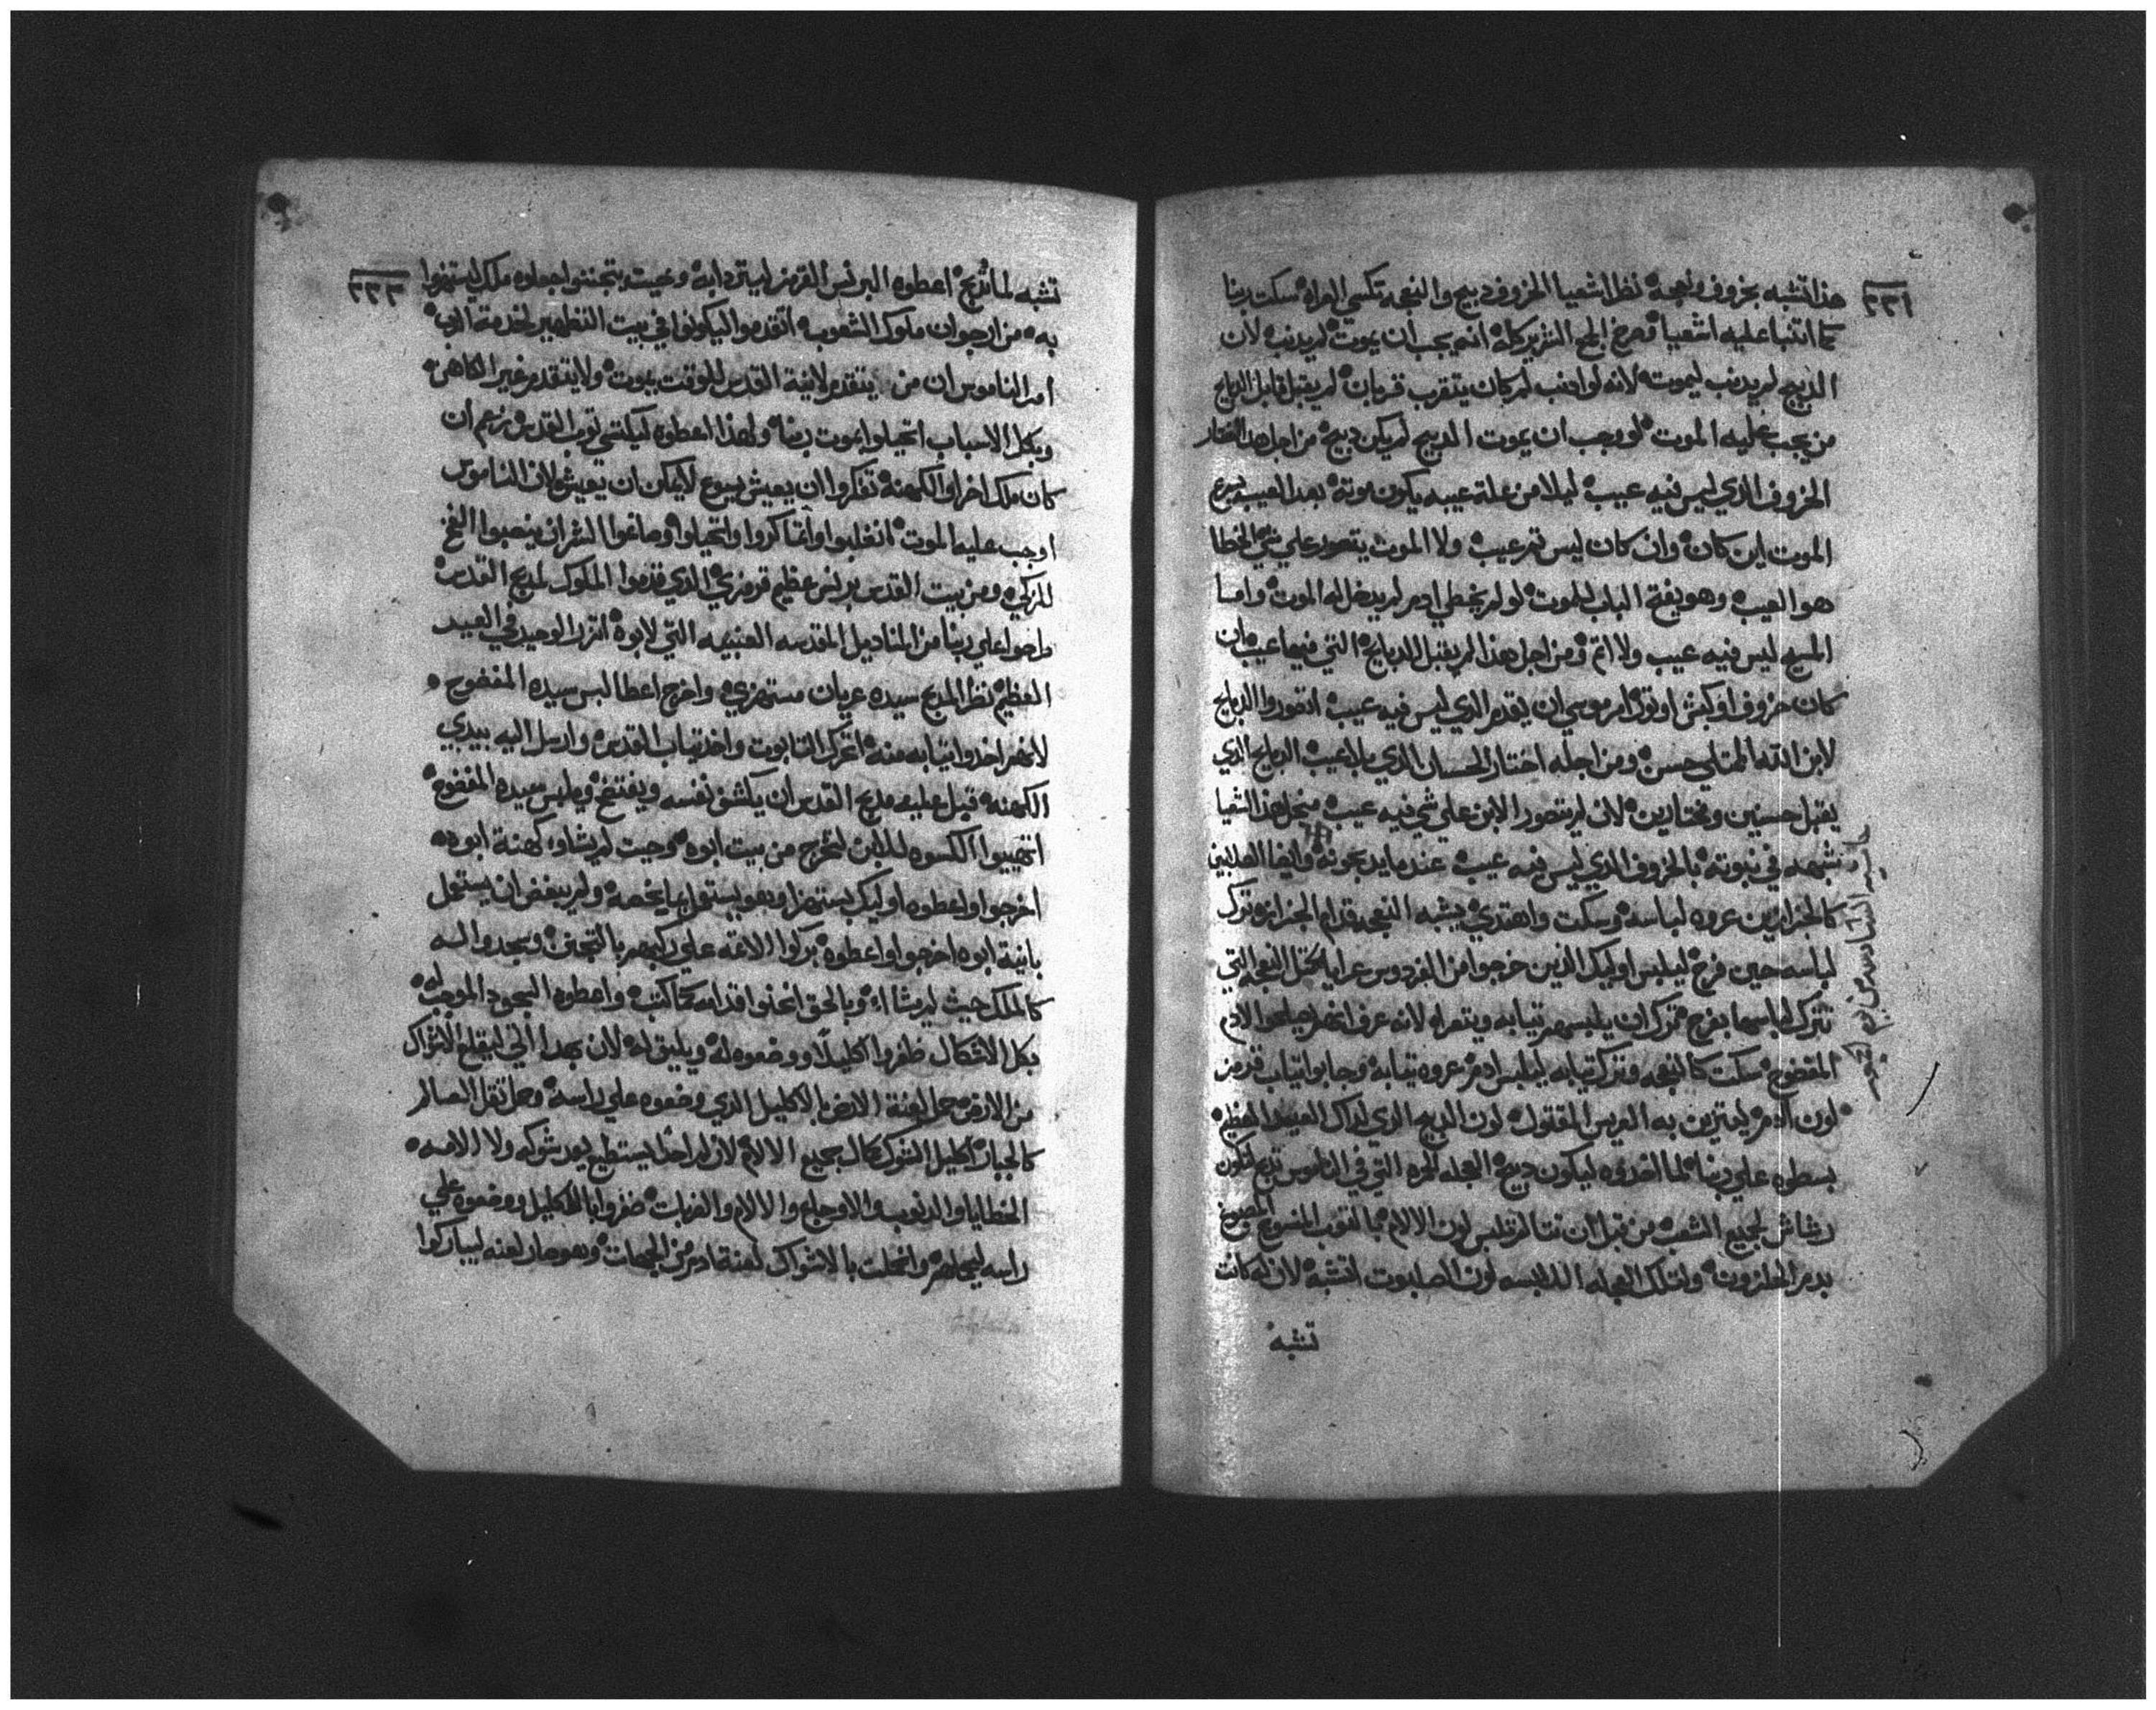 هذا تشبه بخروف ونعجه نظر اشعيا الخروف دبيح والنعجه تكسي العراه سكت ربنا
كما اتنبا عليه اشعيا انه يجب ان يموت لم يدنب لان
الدبيح لم يدنب ليموت لانه لو ادنب لم كان يتقرب قربان لم يقبل قابل الدبايح
من يجب عليه الموت لو وجب ان يموت الدبيح لم يكن دبيح من اجل هدا اختار
الخروف الدي ليس فيه عيب ليلا من علة عيبه يكون موته بعد العيب يسرع
الموت اين كان وان كان ليس تم عيب ولا الموت يتصور علي شي الخطا
هو العيب وهو يفتح الباب للموت لو لم يخطي ادم لم يدخل له الموت واما
المسيح ليس فيه عيب ولا اتم ومن اجل هدا لم يقبل الدبايح التي فيها عيب ان
كان خروف او كبش او تور امر موسي ان يقدم الدي ليس فيه عيب اتصوروا الدبايح
لابن الله الممتلي حسن ومن اجله اختار الحسان الدي بلا عيب الدبايح الدي
يقبل حسنين ومختارين لان لم يتصور الابن علي شي فيه عيب اشعيا
شبهه في نبوته بالخروف الدي ليس فيه عيب عندما يدبحونه وايضا الصلابين
كالجزارين عروه لباسه وسكت واهتدي يشبه النعجه قدام الجزازه ترك
لباسه حين فرح ليلبس اوليك الدين خرجوا من الفردوس عرايا النعجه التي
تترك لباسها بفرح ترك ان يلبسهم تيابه ويتعرا لانه عرف انهم يصلحوا لادم
المفضوح سكت كالنعجه وترك تيابه ليلبس ادم عروه تيابه وجابوا تياب قرمز
لون الدم ليتزين به العريس المقتول لون الدبيح الدي لداك العيد العظيم
بسطوه علي ربنا لما اخدوه ليكون دبيح العجله الحمره التي في الناموس تدبح لتكون
رشاش لجميع الشعب من قبل ان تلبس لون الالام بالتوب المنسوج المصبوغ
بدم الحلزون ولتلك العجله لون الصلبوت اتشبه لان له كانت
تشبه
تشبه لما تدبح اعطوه البرنس القرمز ليتردا به وحيت جعلوه ملك ليستهزوا
به من ارجوان ملوك الشعوب اتقدموا ليكونوا في بيت التطهير لخدمة الرب
امر الناموس ان من يتقدم لانية القدس للوقت يموت ولا يتقدم غير الكاهن
وبكل الاسباب اتحيلوا بموت ربنا ولهدا اعطوه ليكتسي توب القدس بزعم ان
كان ملك اخر او الكهنه تفكروا ان يعيش يسوع لا يمكن ان يعيش لان الناموس
اوجب عليه الموت واتحيلوا وصانعوا الشر ان ينصبوا الفخ
للزكي ومن بيت القدس برنس عظيم قرمزي الدي قدموا الملوك لمدبح القدس
علي ربنا من المناديل المقدسه التي لابوه اتزر الوحيد في العيد
العظيم نظر المدبح سيده عريان مستهزي واخرج اعطا لبس سيده المفضوح
لانهم اخدوا تيابه منه اتحرك التابوت واخد تياب القدس وارسل اليه بيدي
الكهنه قبل عليه مدبح القدس ان يكشف نفسه ويفتضح ويلبس سيده المفضوح
الكسوه للابن لتخرج من بيت ابوه وحيت لم يشاوا كهنة ابوه
اخرجوا واعطوه اوليك يستهزا وهو يستعمل بما يخصه ولم يبغض ان يستعمل
بانية ابوه اخرجوا واعطوه بركوا الامه علي ركبهم وسجدوا له
كالملك حيث لم يشااء وبالحق انحنوا قدامه كما كتب واعطوه السجود الموجب له
بكل الاشكال ظفروا اكليلا ووضعوه له ويليق له لان بهدا اتي ليقلع الاشواك
من الارض حمل لعنة الارض بالاكليل الدي وضعوه علي راسه وحمل تقل العالم
كالجبار اكليل الشوك بجميع الالام لان لم احدا يستطيع يعد شوكه ولا الامه
الخطايا والدنوب والاوجاع والالام والضربات ضفروا بالاكليل ووضعوه علي
راسه وانحلت بالاشواك لعنة ادم من الجهات وهو صار لعنه ليباركوا